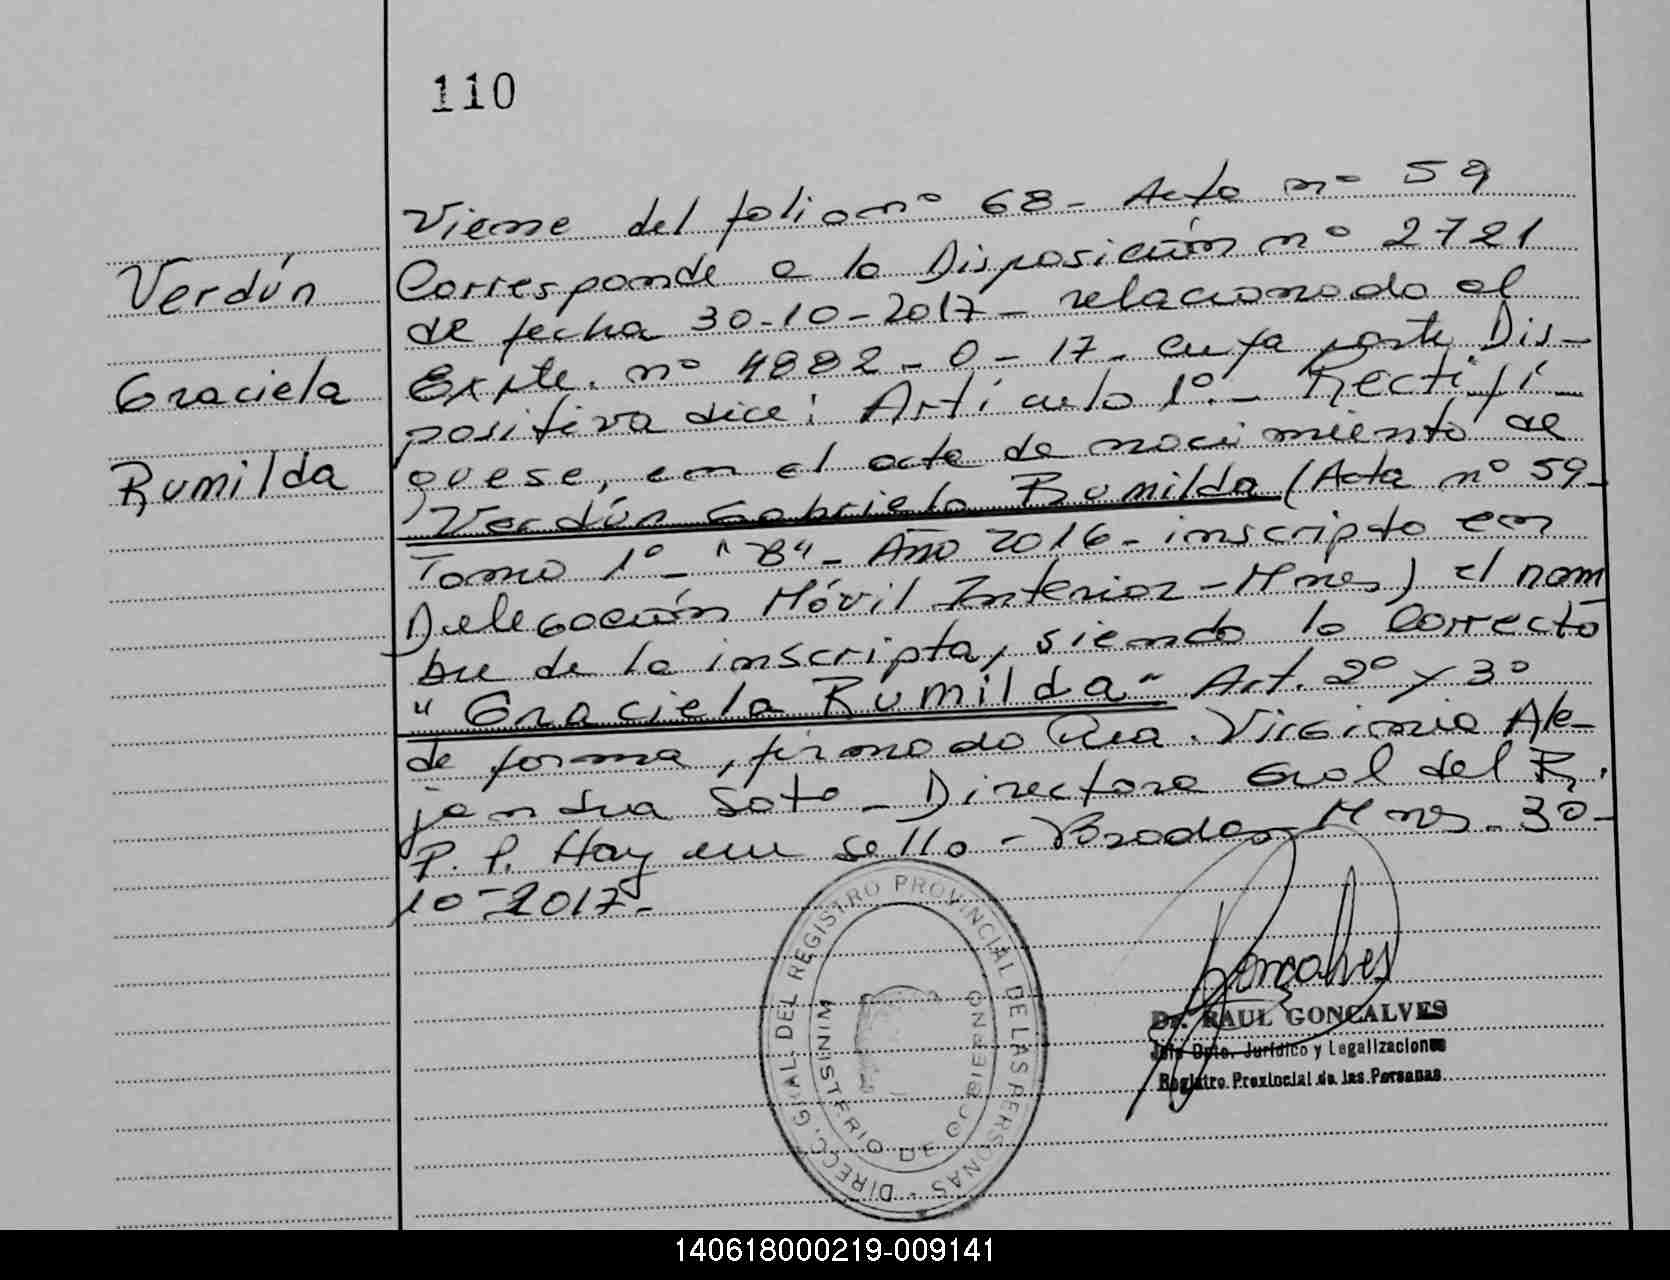 110
Verdún
Graciela
Rumilda
Viene del folio nº 68 - Acta nº 59
Corresponde a la Disposición nº 2721
de fecha 30-10-2017 - relacionado al
Expte. nº 4882 - 0 - 17 - cuya parte Dis-
positiva dice: Artículo 1º.- Rectifí-
quese, en el acta de nacimiento de
Verdún Gabriela Rumilda (Acta nº 59-
Tomo 1º - "B" - Año 2016 - inscripto en
Delegación Móvil Interior - Mnes) el nom
bre de la inscripta, siendo lo correcto
"Graciela Rumilda" Art. 2º y 3º
de forma, firmado Virginia Ale-
jandra Soto - Directora Gral del R.
P. P. Hay un sello - Posadas Mnes. 30-
10-2017-
DIRECC. GRAL. DEL REGISTRO PROVINCIAL DE LAS PERSONAS
MINISTERIO DE GOBIERNO
Goncalves
Dr. RAUL GONCALVES
Jefe Dpto. Jurídico y Legalizaciones
Registro Provincial de las Personas
140618000219-009141